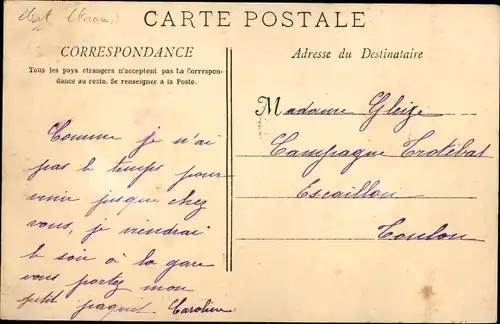 CARTE POSTALE
CORRESPONDANCE
Tous les pays étrangers n'acceptent pas La Correspon-
dance au recto. Se renseigner à la Poste.
Comme je n'ai
pas le temps pour
venir jusque chez
vous, je viendrai
le soir à la gare
vous portez mon
petit paquet. Caroline
Adresse du Destinataire
Madame Gleize
Campagne Trotebas
Escaillon
Toulon